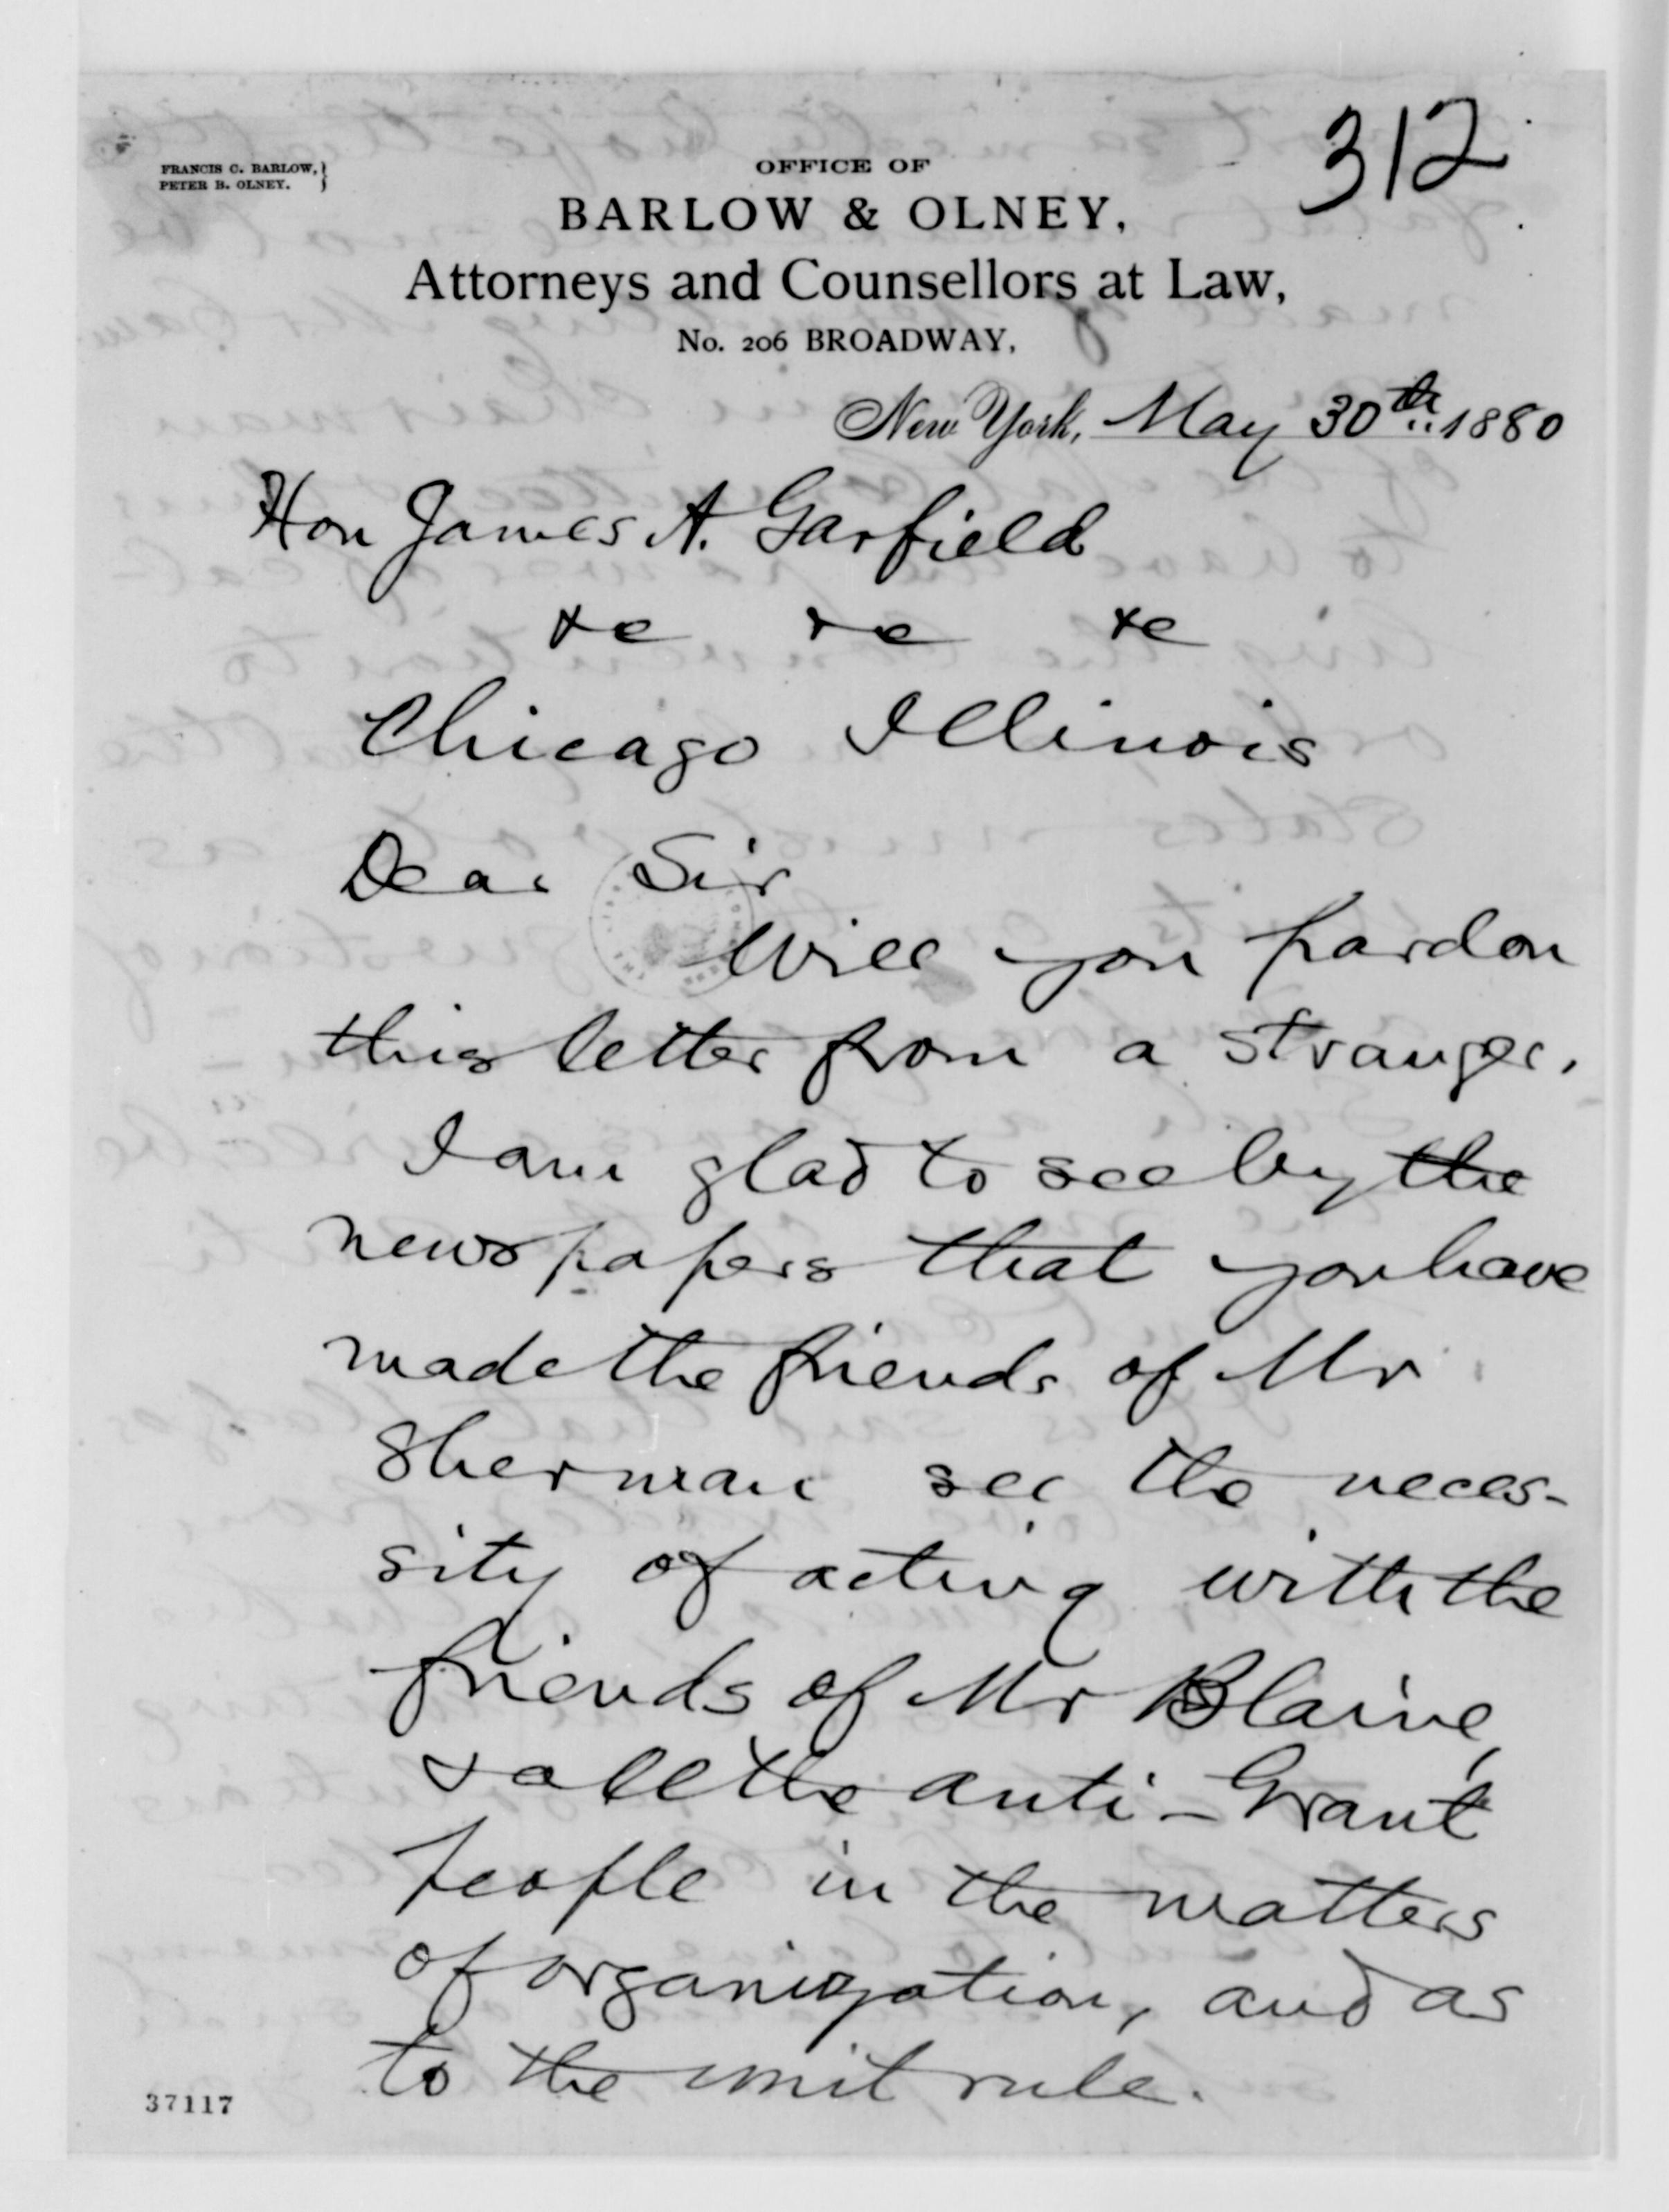 312
FRANCIS C. BARLOW, }
PETER B. OLNEY. }
OFFICE OF
BARLOW & OLNEY,
Attorneys and Counsellors at Law,
No. 206 BROADWAY,
New York, May 30th 1880
Hon James A. Garfield
&c &c &c
Chicago Illinois
Dear Sir
Will you pardon
this letter from a stranger.
I am glad to see by the
newspapers that you have
made the friends of Mr
Sherman see the neces-
sity of acting with the
friends of Mr Blaine,
& all the anti-Grant
people in the matters
of organization, and as
to the unit rule.
37117